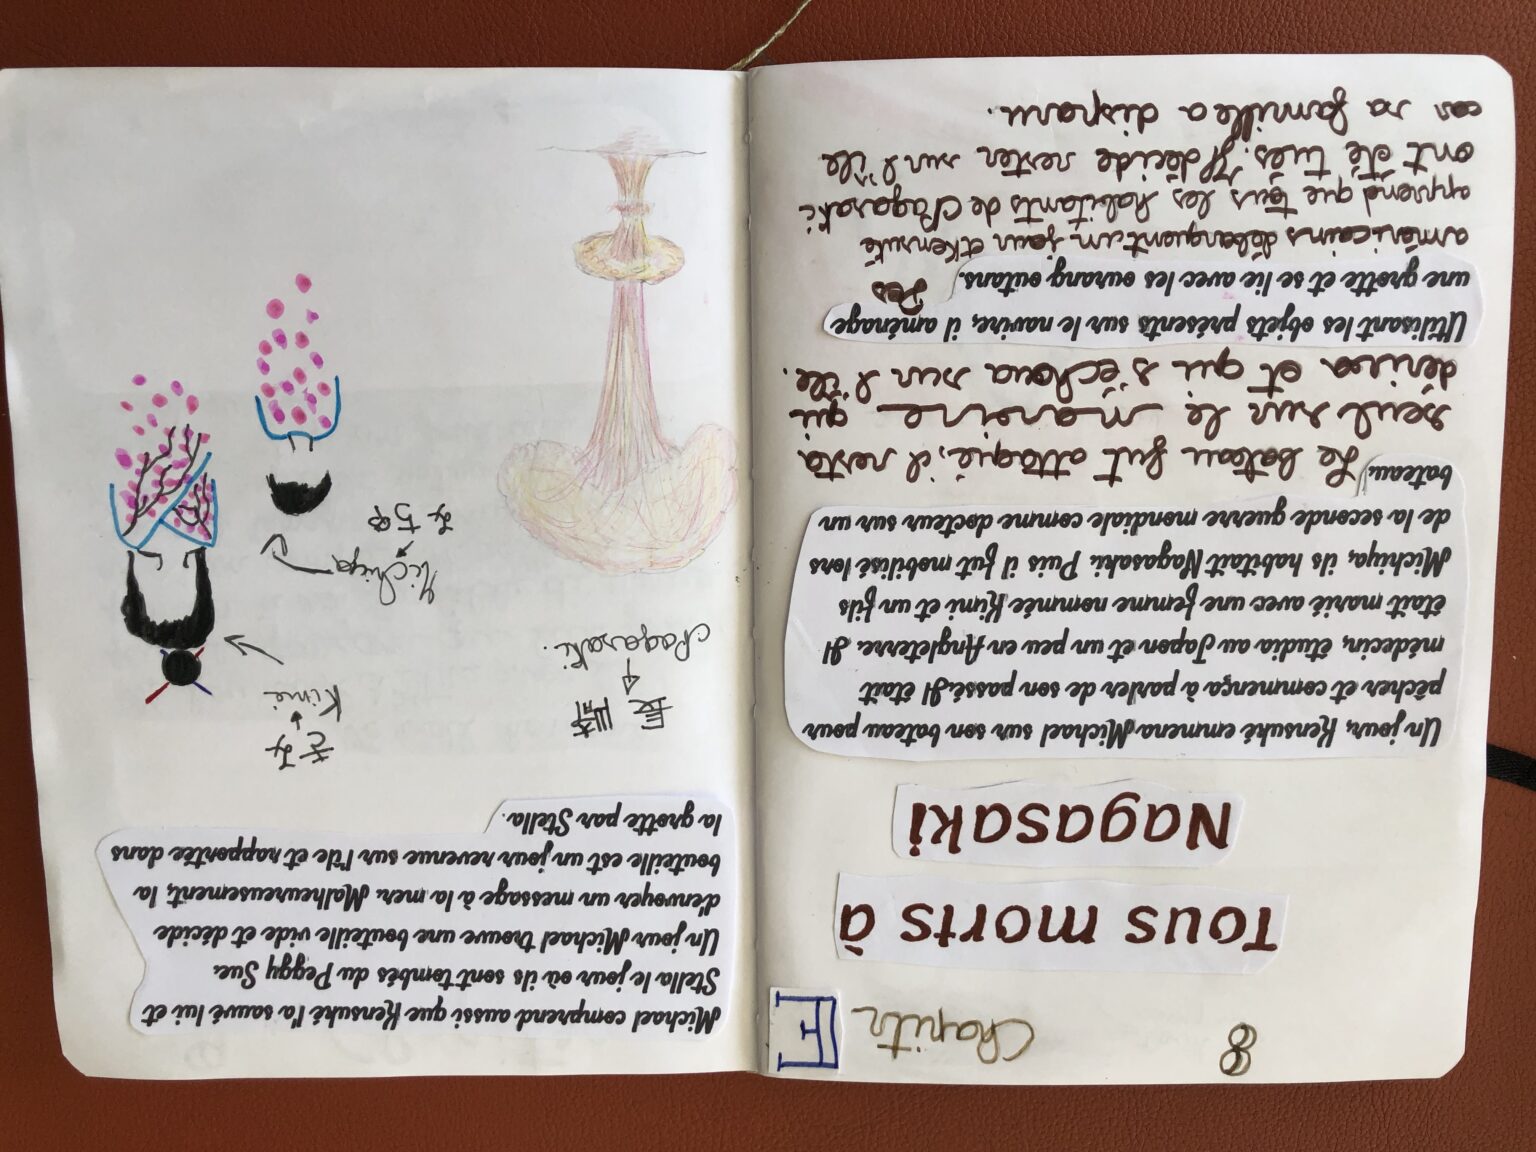 8 Chapitr E
Tous morts à
Nagasaki
Un jour, Kensuké emmena Michael sur son bateau pour
pêcher et commença à parler de son passé.Il était
médecin, étudia au Japon et un peu en Angleterre. Il
était marié avec une femme nommée Kimi et un fils
Michiya, ils habitait Nagasaki. Puis il fut mobilisé lors
de la seconde guerre mondiale comme docteur sur un
bateau. Le bateau fut attaqué, il resta
seul sur le marine qui
dériva et qui s'échoua sur l'île.
Utilisant les objets présents sur le navire, il aménage
une grotte et se lie avec les ourang outans. Des
américains débarquent un jour et Kensuké
apprend que tous les habitants de Nagasaki
ont été tués. Il décide rester sur l'île
car sa famille a disparu.
Michael comprend aussi que Kensuké l'a sauvé lui et
Stella le jour où ils sont tombés du Peggy Sue.
Un jour Michael trouve une bouteille vide et décide
d'envoyer un message à la mer. Malheureusement, la
bouteille est un jour revenue sur l'île et rapportée dans
la grotte par Stella.
長
Nagasaki.
きみ
Kimi
Michiya
みちや